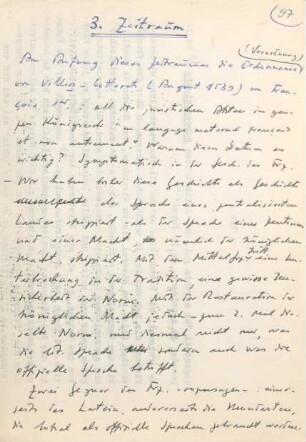 97
3. Zeitraum
(Verordnung)
Am Anfang dieses Zeitraumes die Ordonnance
von Villers-Cotterêts (August 1539) von Fran-
çois 1er: all die juristischen Akten im gan-
zen Königreich in langage maternel français
et non autrement. Warum dieses Datum so
wichtig? Symptomatisch in der Gesch. des Frz.
– Wir haben bisher diese Geschichte als Geschichte
der Sprache eines zentralisierten
Landes skizziert als der Sprache eines Zentrums
und einer Macht nämlich der königlichen
Macht, skizziert. Mit dem Mittelfrz tritt eine Un-
terbrechung in der Tradition, eine gewisse Un-
sicherheit der Norm. Mit der Restauration der
königlichen Macht jedoch – zum 2. Mal die-
selbe Norm; und diesmal nicht nur, was
die lit. Sprache sondern auch was die
offizielle Sprache betrifft.
Zwei Gegner des Frz. : einer-
seits das Latein, andererseits die Mundarten,
die lokal als offizielle Sprachen gebraucht werden.